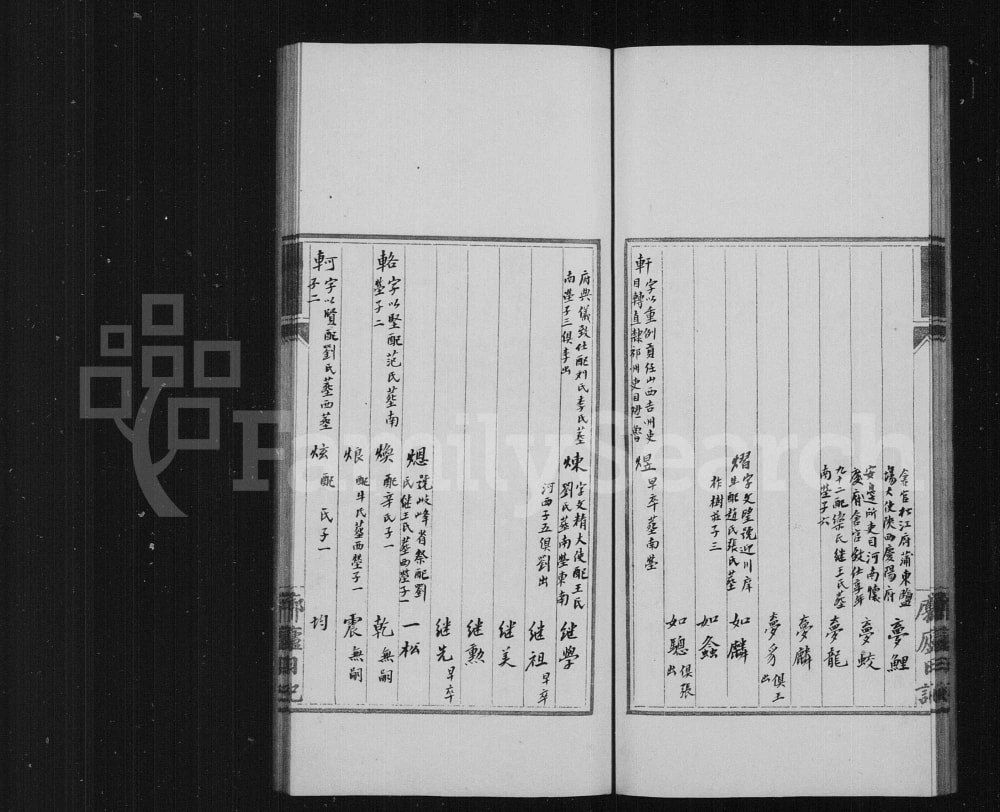 倉官松江府蒲東鹽
場大使陝西慶陽府
安邊所吏目河南懷
慶府倉官致仕享年
九十二配梁氏継王氏塟
南塋子六
夢鯉
夢蛟
夢龍
夢麟
夢豸 俱王出
熠 字文瑩號迎川庠
生配趙氏張氏塟
柞樹莊子三
如麟
如螽
如驄 俱張出
軒 字以重例貢任山西吉州吏
目轉直隸祁州吏目
煜 早卒塟南塋
府典儀致仕配刘氏李氏塟
南塋子三俱李出
煉 字文精大使配王氏
劉氏塟南塋東南
河西子五俱劉出
継學
継祖 早卒
継美
継勲
継先 早卒
輅 字以堅配范氏塟南
塋子二
熜 號岐峰省祭配劉
氏継王氏塟西塋子一
一松
煥 配辛氏子一
乾 無嗣
軻 字以賢配劉氏塟西塋
子二
烺 配牛氏塟西塋子一
震 無嗣
炫 配 氏子一
均
FamilySearch